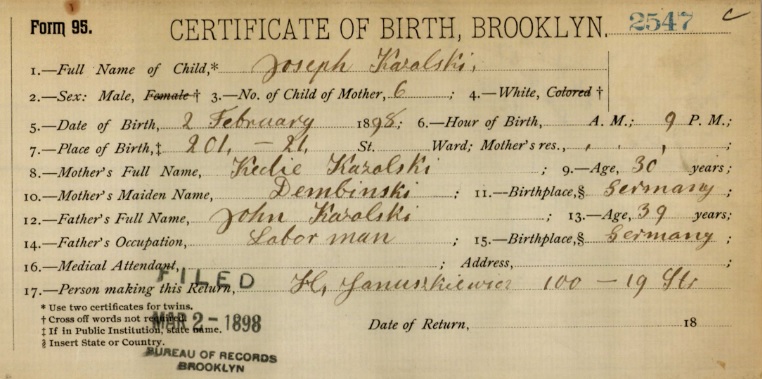 Form 95.
CERTIFICATE OF BIRTH, BROOKLYN. 2547 c
1.—Full Name of Child,* Joseph Kazalski,
2.—Sex: Male, Female † 3.—No. of Child of Mother, 6 ; 4.—White, Colored †
5.—Date of Birth, 2 February 1898; 6.—Hour of Birth, A. M.; 9 P. M.;
7.—Place of Birth,‡ 201, — 21, St. Ward; Mother's res., , , ;
8.—Mother's Full Name, Kazalski ; 9.—Age, 30 years;
10.—Mother's Maiden Name, Dembinski ; 11.—Birthplace,§ Germany ;
12.—Father's Full Name, John Kazalski ; 13.—Age, 39 years;
14.—Father's Occupation, Labor man ; 15.—Birthplace,§ Germany ;
16.—Medical Attendant, ; Address, ;
17.—Person making this Return, H, Januszkiewicz 100 — 19 Str
* Use two certificates for twins.
† Cross off words not required.
‡ If in Public Institution, state name.
§ Insert State or Country.
FILED
MAR 2 – 1898
BUREAU OF RECORDS
BROOKLYN
Date of Return, 18